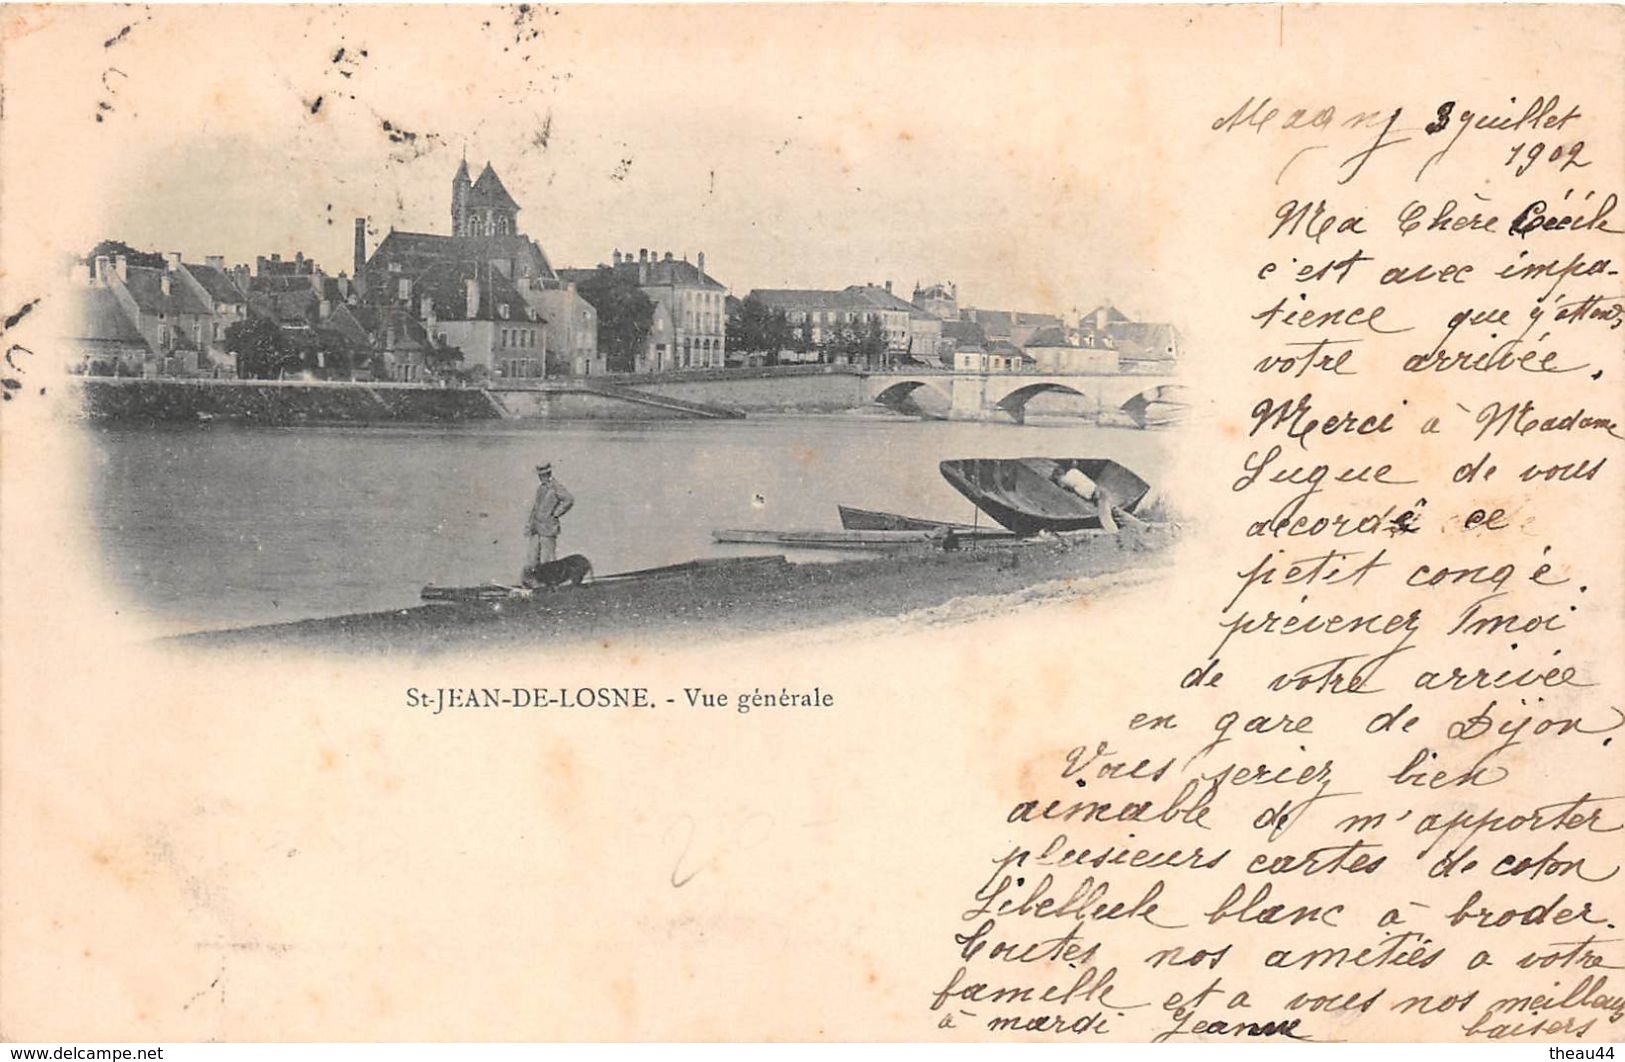 Magny 3 juillet
1902
Ma Chère Cécile
c'est avec impa-
tience que j'attends
votre arrivée.
Merci à Madame
Lugue de vous
accordé ce
petit congé.
prévenez moi
de votre arrivée
en gare de Dijon.
Vous seriez bien
aimable de m'apporter
plusieurs cartes de coton
Libellule blanc à broder.
Toutes nos amitiés a votre
famille et a vous nos meilleurs
à mardi Jeanne baisers
St-JEAN-DE-LOSNE. - Vue générale
www.delcampe.net
theau44